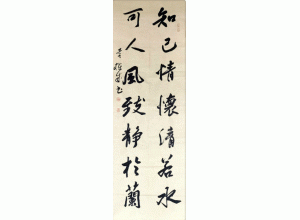 知己情懷清若水
可人風致靜於蘭